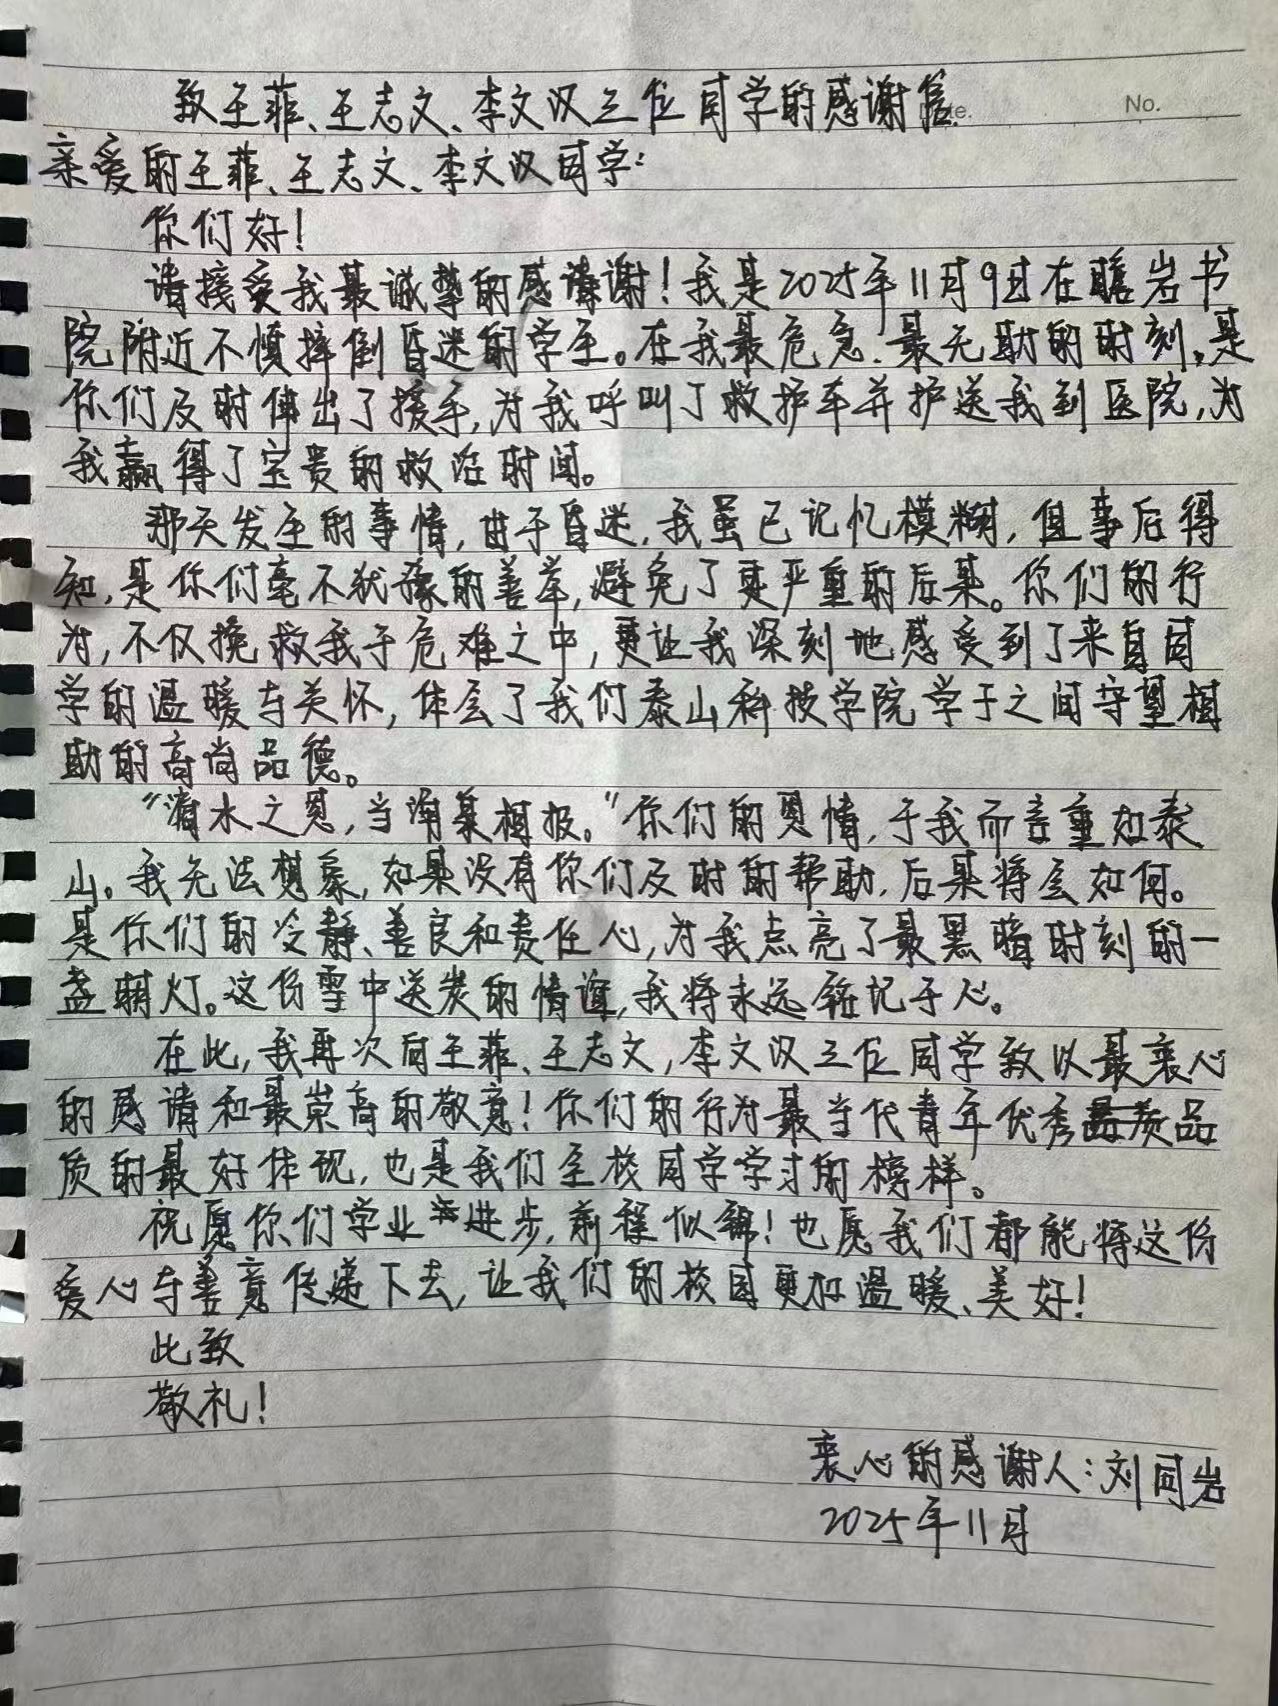 致王菲、王志文、李文汉三位同学的感谢信.
No.
亲爱的王菲、王志文、李文汉同学:
你们好!
请接受我最诚挚的感谢!我是2025年11月9日在瞻岩书
院附近不慎摔倒昏迷的学生。在我最危急、最无助的时刻,是
你们及时伸出了援手,为我呼叫了救护车并护送我到医院,为
我赢得了宝贵的救治时间。
那天发生的事情,由于昏迷,我虽已记忆模糊,但事后得
知,是你们毫不犹豫的善举,避免了更严重的后果。你们的行
为,不仅挽救我于危难之中,更让我深刻地感受到了来自同
学的温暖与关怀,体会了我们泰山科技学院学子之间守望相
助的高尚品德。
“滴水之恩,当涌泉相报。”你们的恩情,于我而言重如泰
山。我无法想象,如果没有你们及时的帮助,后果将会如何。
是你们的冷静、善良和责任心,为我点亮了最黑暗时刻的一
盏明灯。这份雪中送炭的情谊,我将永远铭记于心。
在此,我再次向王菲、王志文,李文汉三位同学致以最衷心
的感谢和最崇高的敬意!你们的行为最当代青年优秀品
质的最好体现,也是我们全校同学学习的榜样。
祝愿你们学业进步,前程似锦!也愿我们都能将这份
爱心与善意传递下去,让我们的校园更加温暖、美好!
此致
敬礼!
衷心的感谢人:刘同岩
2025年11月